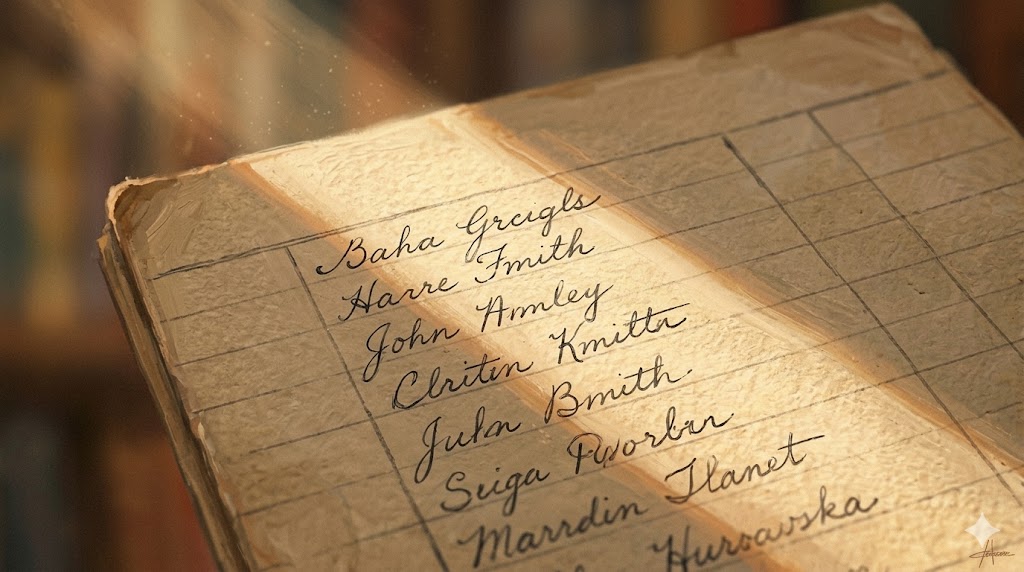 Baha Grcigls
Harre Fmith
John Amley
Clritin Kmittn
Juhn Bmith.
Sciga
Marrdin Tlanet
Hurvavska